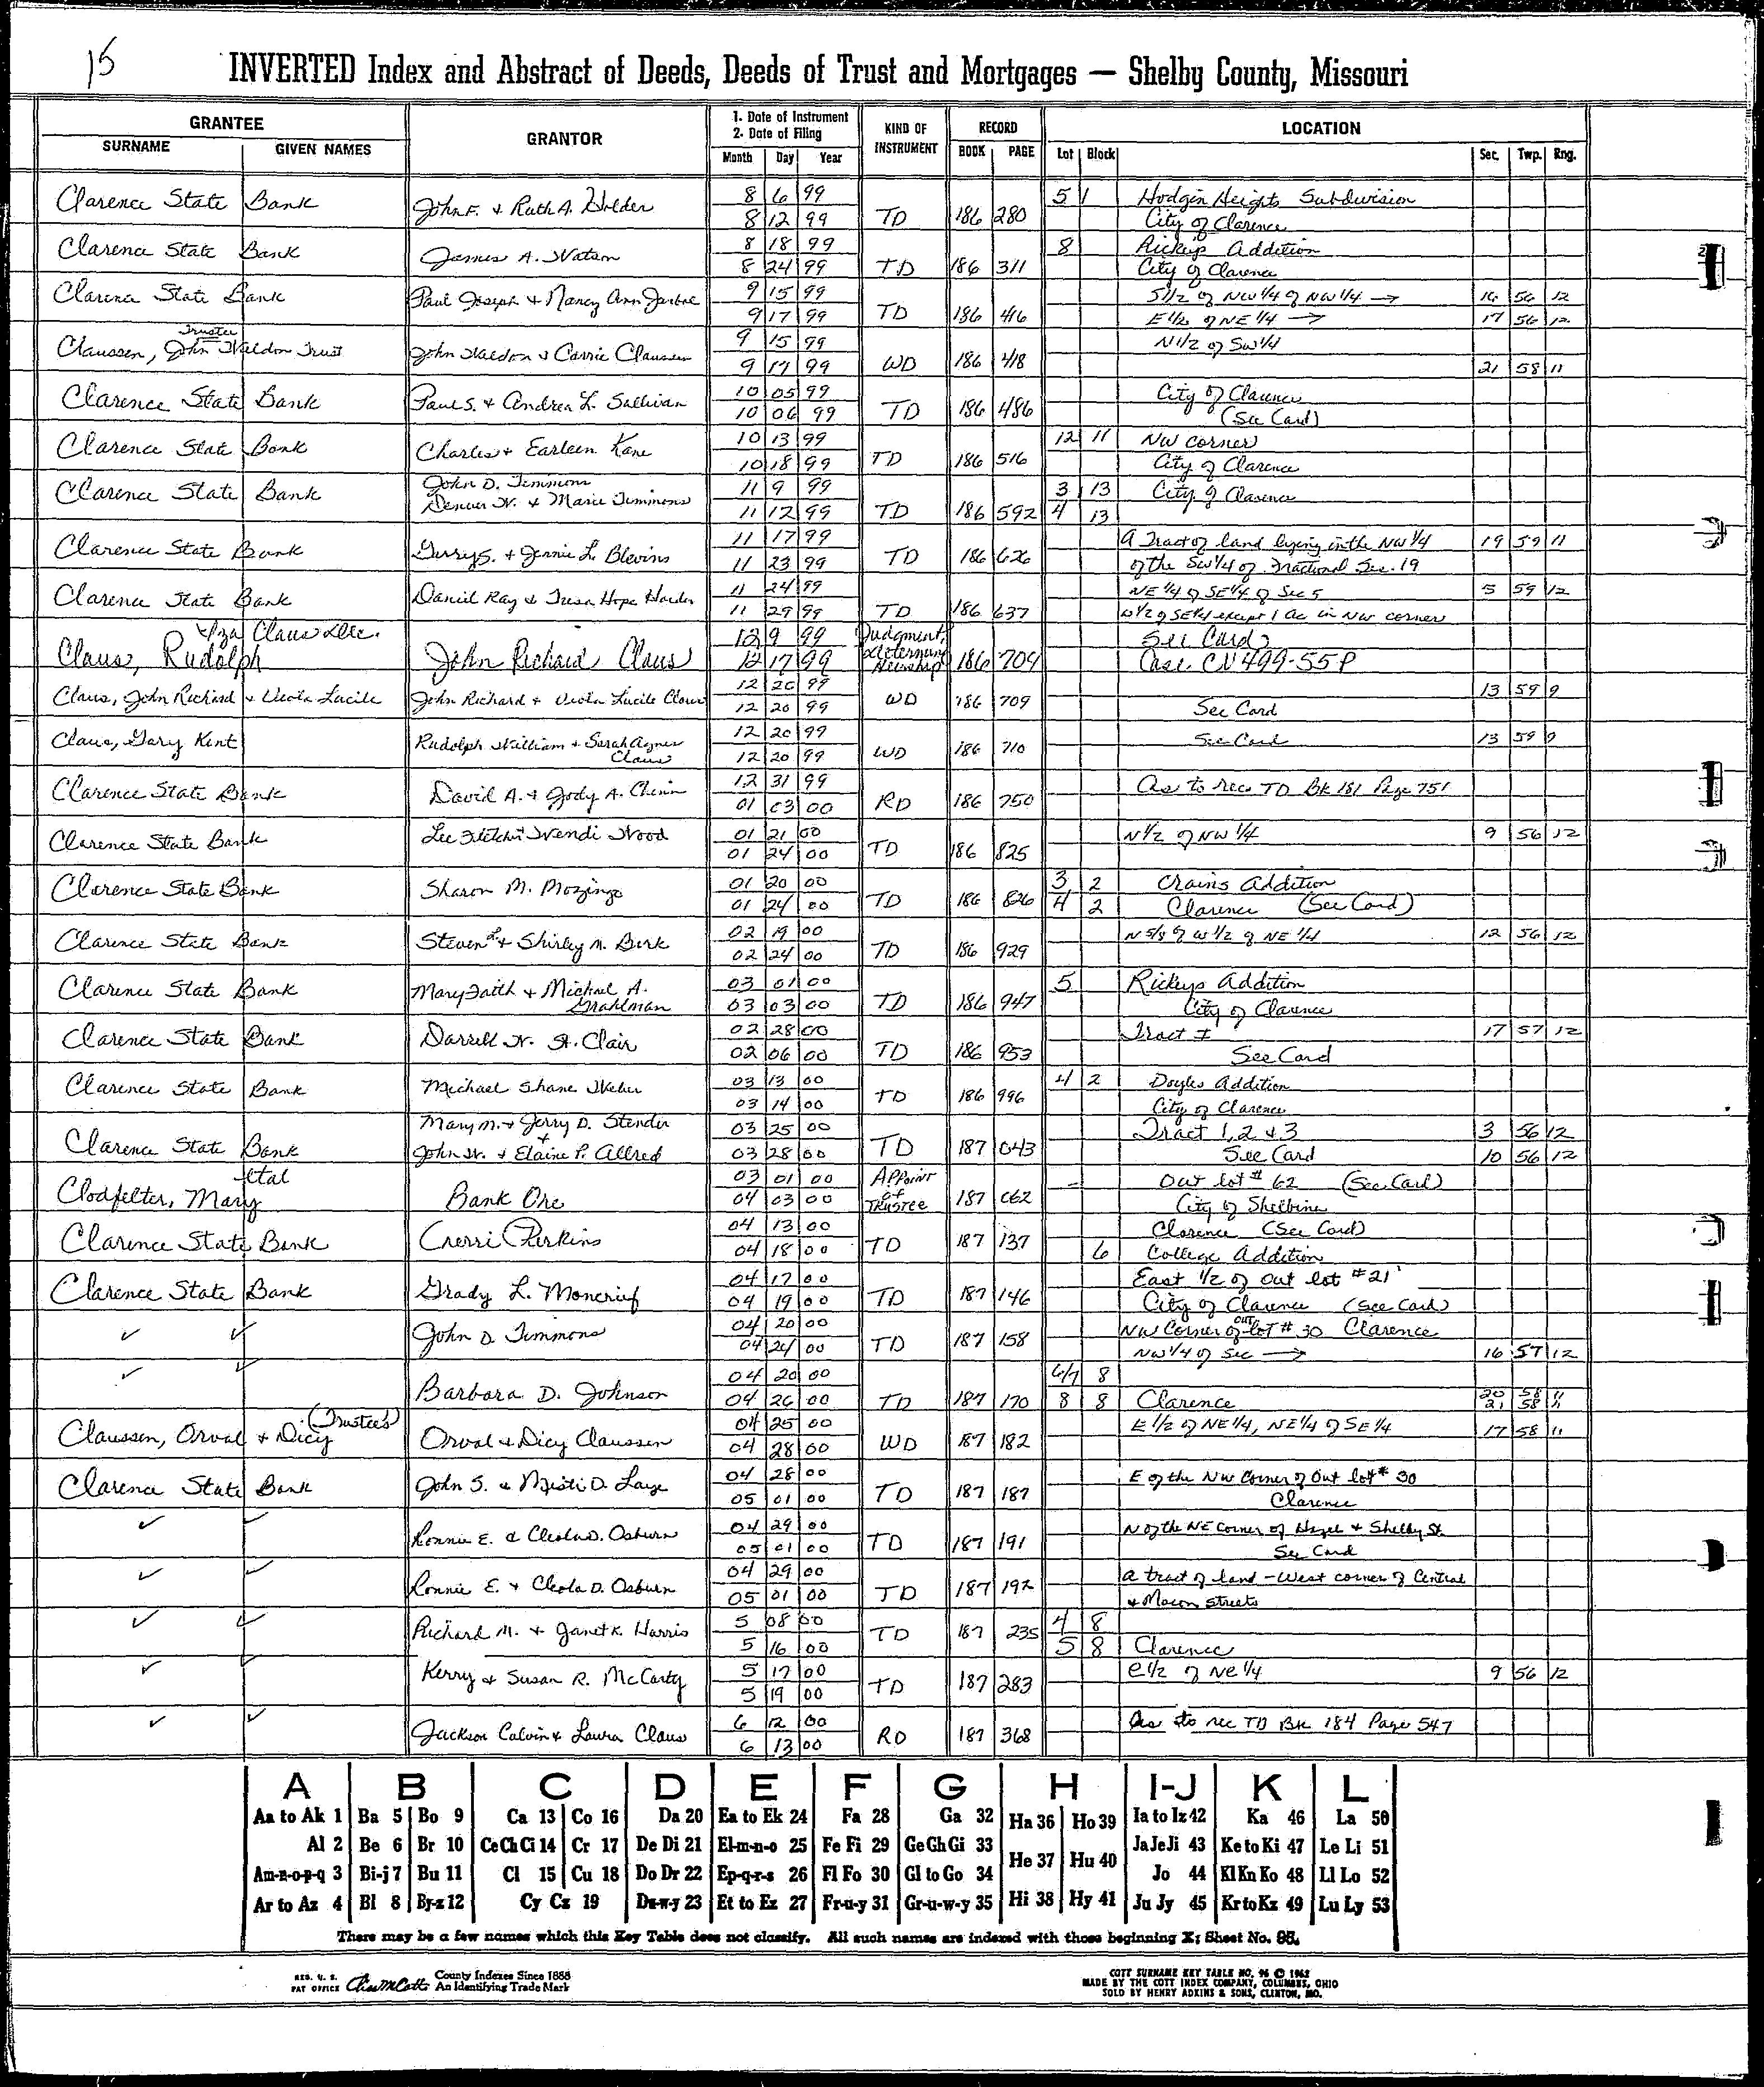 15
INVERTED Index and Abstract of Deeds, Deeds of Trust and Mortgages — Shelby County, Missouri
GRANTEE GRANTOR 1. Date of Instrument 2. Date of Filing KIND OF INSTRUMENT RECORD LOCATION
SURNAME GIVEN NAMES Month Day Year BOOK PAGE Lot Block Sec. Twp. Rng.
Clarence State Bank John F. + Ruth A. Holder 8 6 99 5 1 Hodgin Heights Subdivision
8 12 99 TD 186 280 City of Clarence
Clarence State Bank James A. Watson 8 18 99 8 Rickeys Addition
8 24 99 TD 186 311 City of Clarence
Clarence State Bank Paul Joseph + Nancy Ann 9 15 99 S1/2 of NW 1/4 of NW 1/4 → 16 56 12
9 17 99 TD 186 416 E 1/2 of NE 1/4 → 17 56 12
Trustee
Claussen, John Weldon Trust John Weldon & Carrie Claussen 9 15 99 N1/2 of SW1/4
9 17 99 WD 186 418 21 58 11
Clarence State Bank Paul S. + Andrea L. Sullivan 10 05 99 City of Clarence
10 06 99 TD 186 486 (See Card)
Clarence State Bank Charles + Earleen Kane 10 13 99 12 11 NW corner
10 18 99 TD 186 516 City of Clarence
Clarence State Bank John D. Timmons 11 9 99 3 13 City of Clarence
Denver W. + Marie Timmons 11 12 99 TD 186 592 4 13
Clarence State Bank Gerry S. + Jennie L. Blevins 11 17 99 A Tract of land lying in the NW 1/4 19 59 11
11 23 99 TD 186 626 of the SW 1/4 of Fractional Sec. 19
Clarence State Bank Daniel Ray + Tresa Hope Harder 11 24 99 NE 1/4 of SE 1/4 of Sec 5 5 59 12
11 29 99 TD 186 637 W 1/2 of SE 1/4 except 1 Ac in NW corner
Claus Dec. 12 9 99 Judgment, See Card
Claus, Rudolph John Richard Claus 12 17 99 Determing Heirship 186 704 Case CV499-55P
Claus, John Richard + Viola Lucile John Richard + Viola Lucile Claus 12 20 99 13 59 9
12 20 99 WD 186 709 See Card
Claus, Gary Kent Rudolph William + Sarah Agnes 12 20 99 See Card 13 59 9
Claus 12 20 99 WD 186 710
Clarence State Bank David A. + Jody A. Chinn 12 31 99 As to rec TD Bk 181 Page 751
01 03 00 RD 186 750
Clarence State Bank Lee Wendi Wood 01 21 00 N 1/2 of NW 1/4 9 56 12
01 24 00 TD 186 825
Clarence State Bank Sharon M. Mozingo 01 20 00 3 2 Crains Addition
01 24 00 TD 186 826 4 2 Clarence (See Card)
Clarence State Bank Steven L. + Shirley M. Berk 02 19 00 N 5/8 of W 1/2 of NE 1/4 12 56 12
02 24 00 TD 186 929
Clarence State Bank Mary Faith + Michael A. 03 01 00 5 Rickeys Addition
Grahlman 03 03 00 TD 186 947 City of Clarence
Clarence State Bank Darrell W. St. Clair 02 28 00 Tract I 17 57 12
02 06 00 TD 186 953 See Card
Clarence State Bank Michael Shane Weber 03 13 00 4 2 Doyles Addition
03 14 00 TD 186 996 City of Clarence
Mary M. + Jerry D. Stender 03 25 00 Tract 1, 2 & 3 3 56 12
Clarence State Bank + John W. + Elaine P. Allred 03 28 00 TD 187 043 See Card 10 56 12
etal 03 01 00 Appoint Out lot # 62 (See Card)
Clodfelter, Mary Bank One 04 03 00 of Trustee 187 062 City of Shelbina
Clarence State Bank Cherri Perkins 04 13 00 Clarence (See Card)
04 18 00 TD 187 137 6 College Addition
Clarence State Bank Grady L. Moncrief 04 17 00 East 1/2 of out lot #21
04 19 00 TD 187 146 City of Clarence (See Card)
✓ ✓ John D. Timmons 04 20 00 NW Corner of out lot # 30 Clarence
04 24 00 TD 187 158 NW 1/4 of Sec → 16 57 12
✓ ✓ 04 20 00 6/7 8
Barbara D. Johnson 04 26 00 TD 187 170 8 8 Clarence 20 58 11
21 58 11
(Trustees)
Claussen, Orval + Dicy Orval & Dicy Claussen 04 25 00 E 1/2 of NE 1/4, NE 1/4 of SE 1/4 17 58 11
04 28 00 WD 187 182
Clarence State Bank John S. & Misti D. Lange 04 28 00 E of the NW Corner of Out lot # 30
05 01 00 TD 187 187 Clarence
✓ ✓ Ronnie E. & Cleola D. Osburn 04 29 00 N of the NE corner of Hazel & Shelby St.
05 01 00 TD 187 191 See Card
✓ ✓ Ronnie E. + Cleola D. Osburn 04 29 00 A tract of land - West corner of Central
05 01 00 TD 187 192 + Macon streets
✓ ✓ Richard M. + Janet K. Harris 5 08 00 4 8
5 16 00 TD 187 235 5 8 Clarence
✓ ✓ Kerry & Susan R. McCarty 5 17 00 E 1/2 of NE 1/4 9 56 12
5 19 00 TD 187 283
✓ ✓ Jackson Calvin & Laura Claus 6 12 00 As to rec TD Bk 184 Page 547
6 13 00 RD 187 368
A B C D E F G H I-J K L
Aa to Ak 1 Ba 5 Bo 9 Ca 13 Co 16 Da 20 Ea to Ek 24 Fa 28 Ga 32 Ha 36 Ho 39 Ia to Iz 42 Ka 46 La 50
Al 2 Be 6 Br 10 Ce Ch Ci 14 Cr 17 De Di 21 El-m-n-o 25 Fe Fi 29 Ge Gh Gi 33 He 37 Hu 40 Ja Je Ji 43 Ke to Ki 47 Le Li 51
Am-n-o-p-q 3 Bi-j 7 Bu 11 Cl 15 Cu 18 Do Dr 22 Ep-q-r-s 26 Fl Fo 30 Gl to Go 34 Jo 44 Kl Kn Ko 48 Ll Lo 52
Ar to Az 4 Bl 8 By-z 12 Cy Cz 19 Du-w-y 23 Et to Ez 27 Fr-u-y 31 Gr-u-w-y 35 Hi 38 Hy 41 Ju Jy 45 Kr to Kz 49 Lu Ly 53
There may be a few names which this Key Table does not classify. All such names are indexed with those beginning X; Sheet No. 95.
REG. U. S. PAT OFFICE County Indexes Since 1888 An Identifying Trade Mark
COTT SURNAME KEY TABLE NO. 96 © 1962
MADE BY THE COTT INDEX COMPANY, COLUMBUS, OHIO
SOLD BY HENRY ADKINS & SONS, CLINTON, MO.